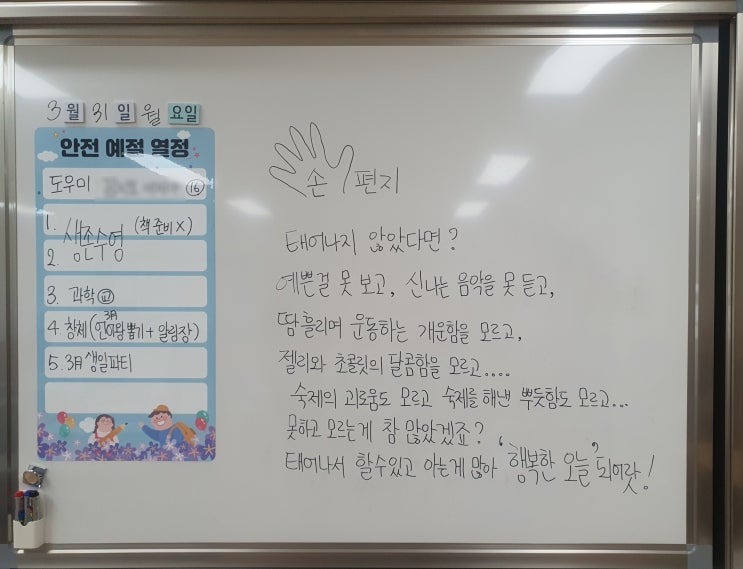 3월 31일 월요일
안전 예절 열정
도우미 16
1. 생존수영 (책준비X)
2.
3. 과학 교
4. 창체(3月 언어왕뽑기+알림장)
5. 3月 생일파티
손편지
태어나지 않았다면?
예쁜걸 못 보고, 신나는 음악을 못 듣고,
땀 흘리며 운동하는 개운함을 모르고,
젤리와 초콜릿의 달콤함을 모르고....
숙제의 괴로움도 모르고 숙제를 해낸 뿌듯함도 모르고...
못하고 모르는게 참 많았겠죠?
태어나서 할수있고 아는게 많아 '행복한 오늘' 되어랏!